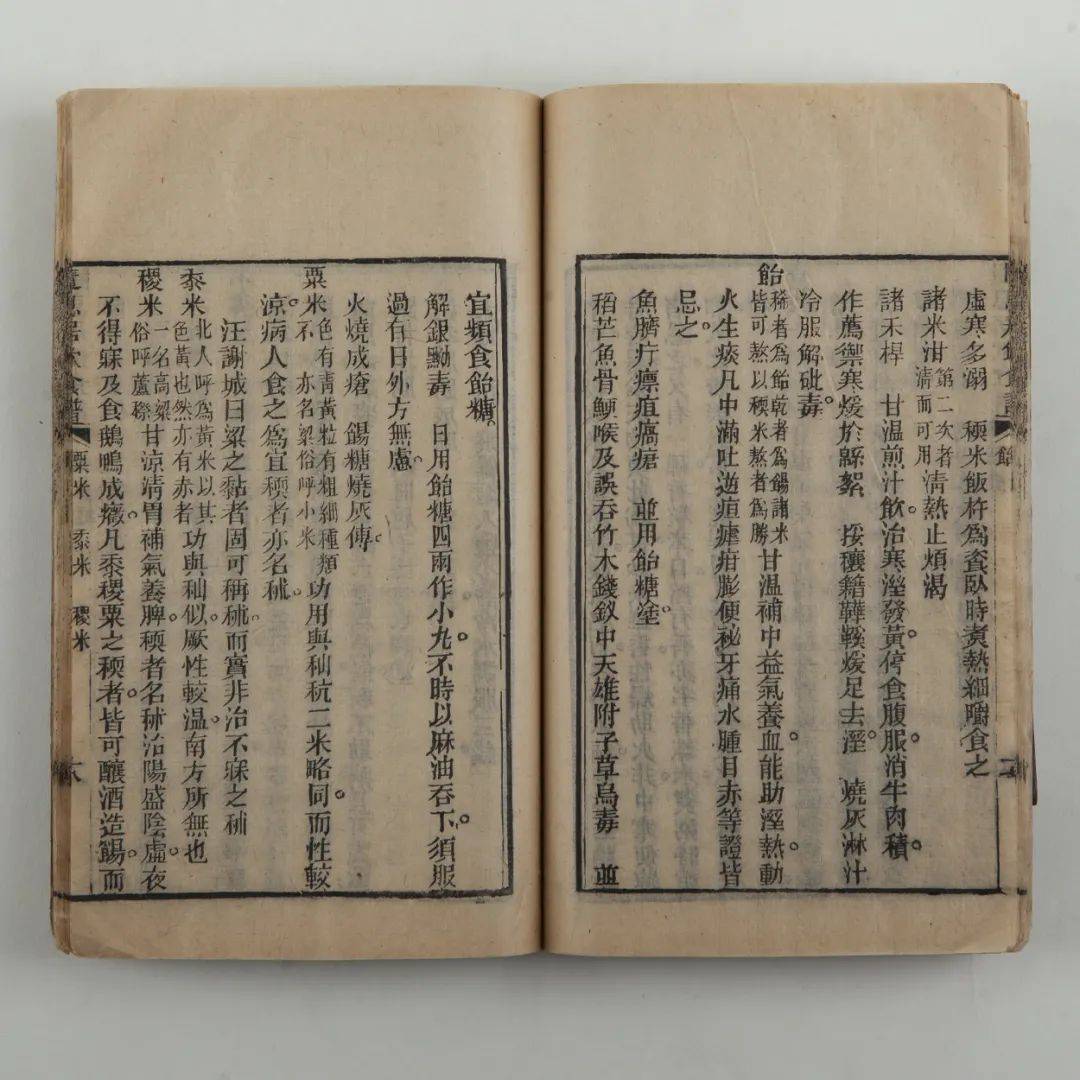 虛寒多溺　稬米飯杵爲䊚臥時煑熱細嚼食之
諸米泔第二次者清而可用清熱止煩渴
諸禾稈　甘溫煎汁飲。治寒溼發黃。停食腹脹。消牛肉積。
作薦禦寒煖於緜絮　挼穰籍鞾鞵煖足去溼。　燒灰淋汁
冷服解砒毒。
飴稀者爲飴乾者爲餳諸米皆可熬以稬米熬者爲勝甘溫補中益氣養血。能助溼熱。動
火生痰。凡中滿吐逆疸瘧疳膨便祕牙痛水腫目赤等證皆
忌之。
魚臍疔瘭疽瘑瘡　並用飴糖塗。
稻芒魚骨鯁喉及誤吞竹木錢釵中天雄附子草烏毒　並
宜頻食飴糖。
解銀黝毒　日用飴糖四兩作小丸。不時以麻油吞下。須服
過百日外方無慮。
火燒成瘡　餳糖燒灰傅。
粟米色有青黃粒有粗細種類不一亦名粱俗呼小米功用與秈秔二米略同。而性較
涼。病人食之爲宜。稬者亦名秫。
汪謝城曰粱之黏者固可稱秫而實非治不寐之秫
黍米北人呼爲黃米以其色黃也然亦有赤者功與秈似。厥性較溫。南方所無也
稷米一名高粱俗呼蘆穄甘涼清胃補氣養脾。稬者名秫治陽盛陰虛。夜
不得寐及食鵝鴨成癥。凡黍稷粟之稬者。皆可釀酒造餳。而
隨息居飲食譜
粟米　黍米　稷米